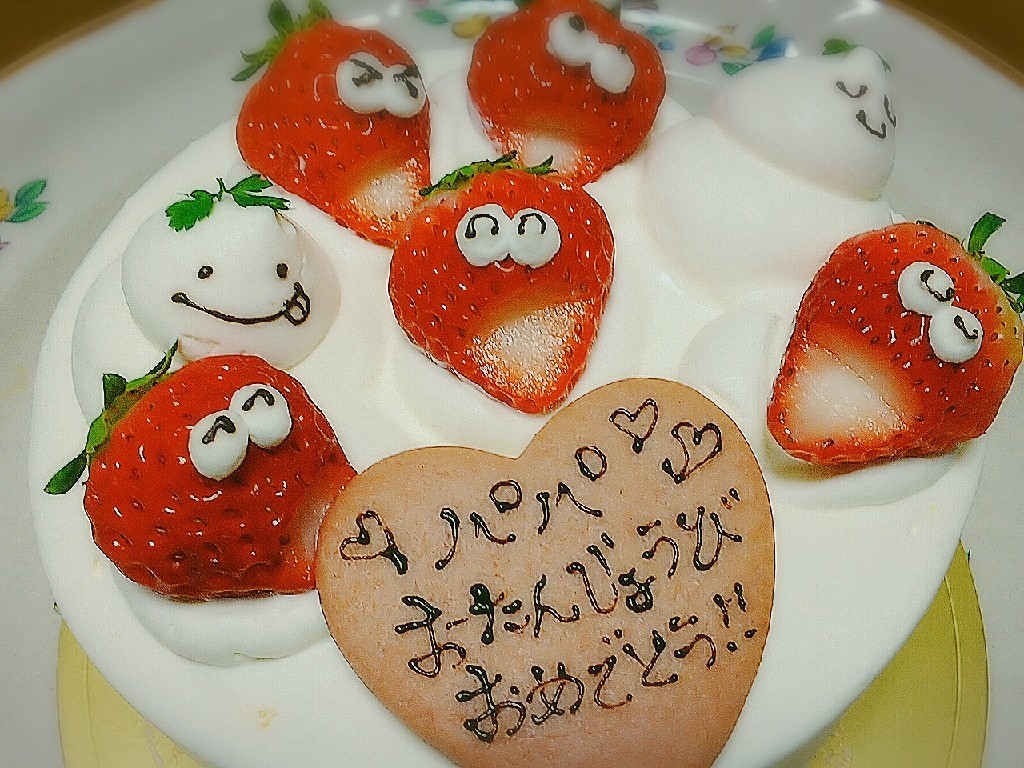 ♡パパ♡♡
おたんじょうび
おめでどう!!